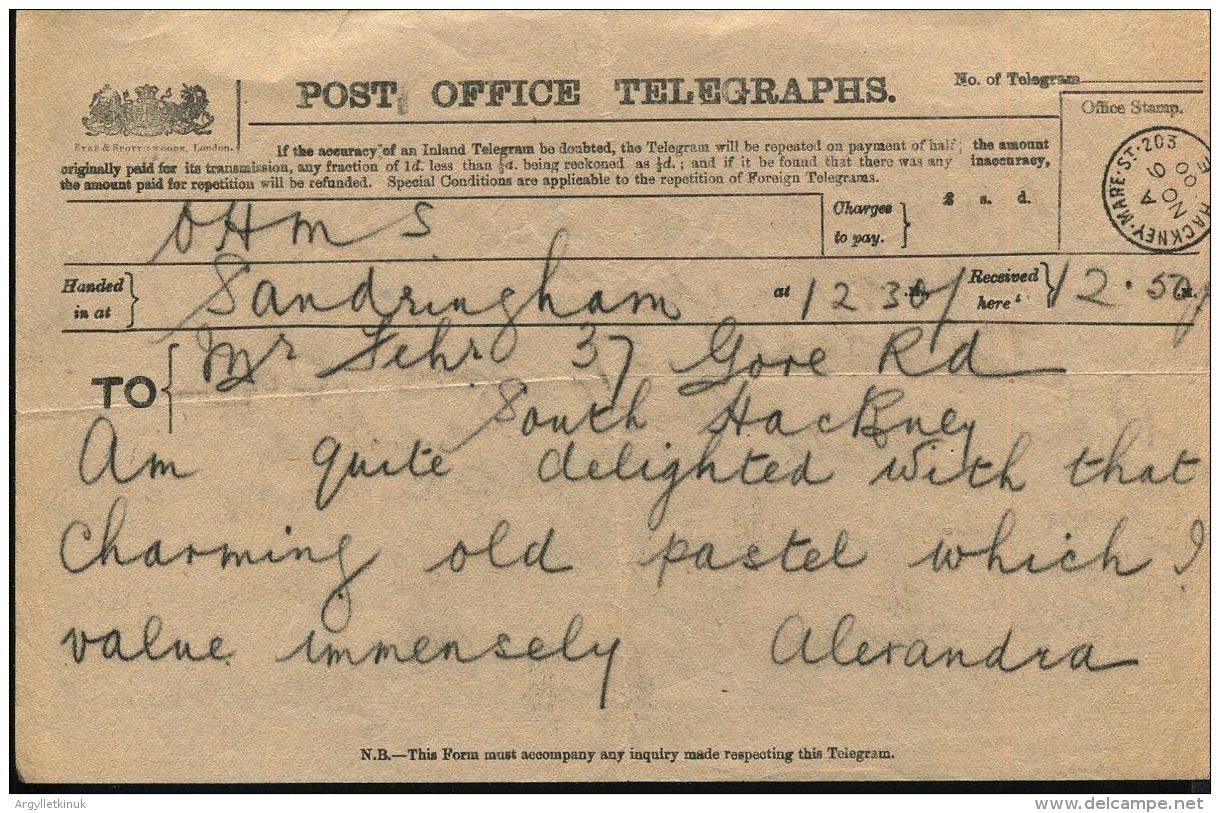 POST OFFICE TELEGRAPHS.
No. of Telegram
Office Stamp.
EYRE & SPOTTISWOODE, London.
If the accuracy of an Inland Telegram be doubted, the Telegram will be repeated on payment of half the amount
originally paid for its transmission, any fraction of 1d. less than ½d. being reckoned as ½d.; and if it be found that there was any inaccuracy,
the amount paid for repetition will be refunded. Special Conditions are applicable to the repetition of Foreign Telegrams.
HACKNEY·MARE·ST·203
NO 9
00
OHMS
Charges to pay. } £ s. d.
Handed in at } Sandringham at 12 30 Received here } 12.50
TO { Mr Fehr 37 Gore Rd
South Hackney
Am quite delighted with that
charming old pastel which I
value immensely Alexandra
N.B.—This Form must accompany any inquiry made respecting this Telegram.
Argylletkinuk
www.delcampe.net